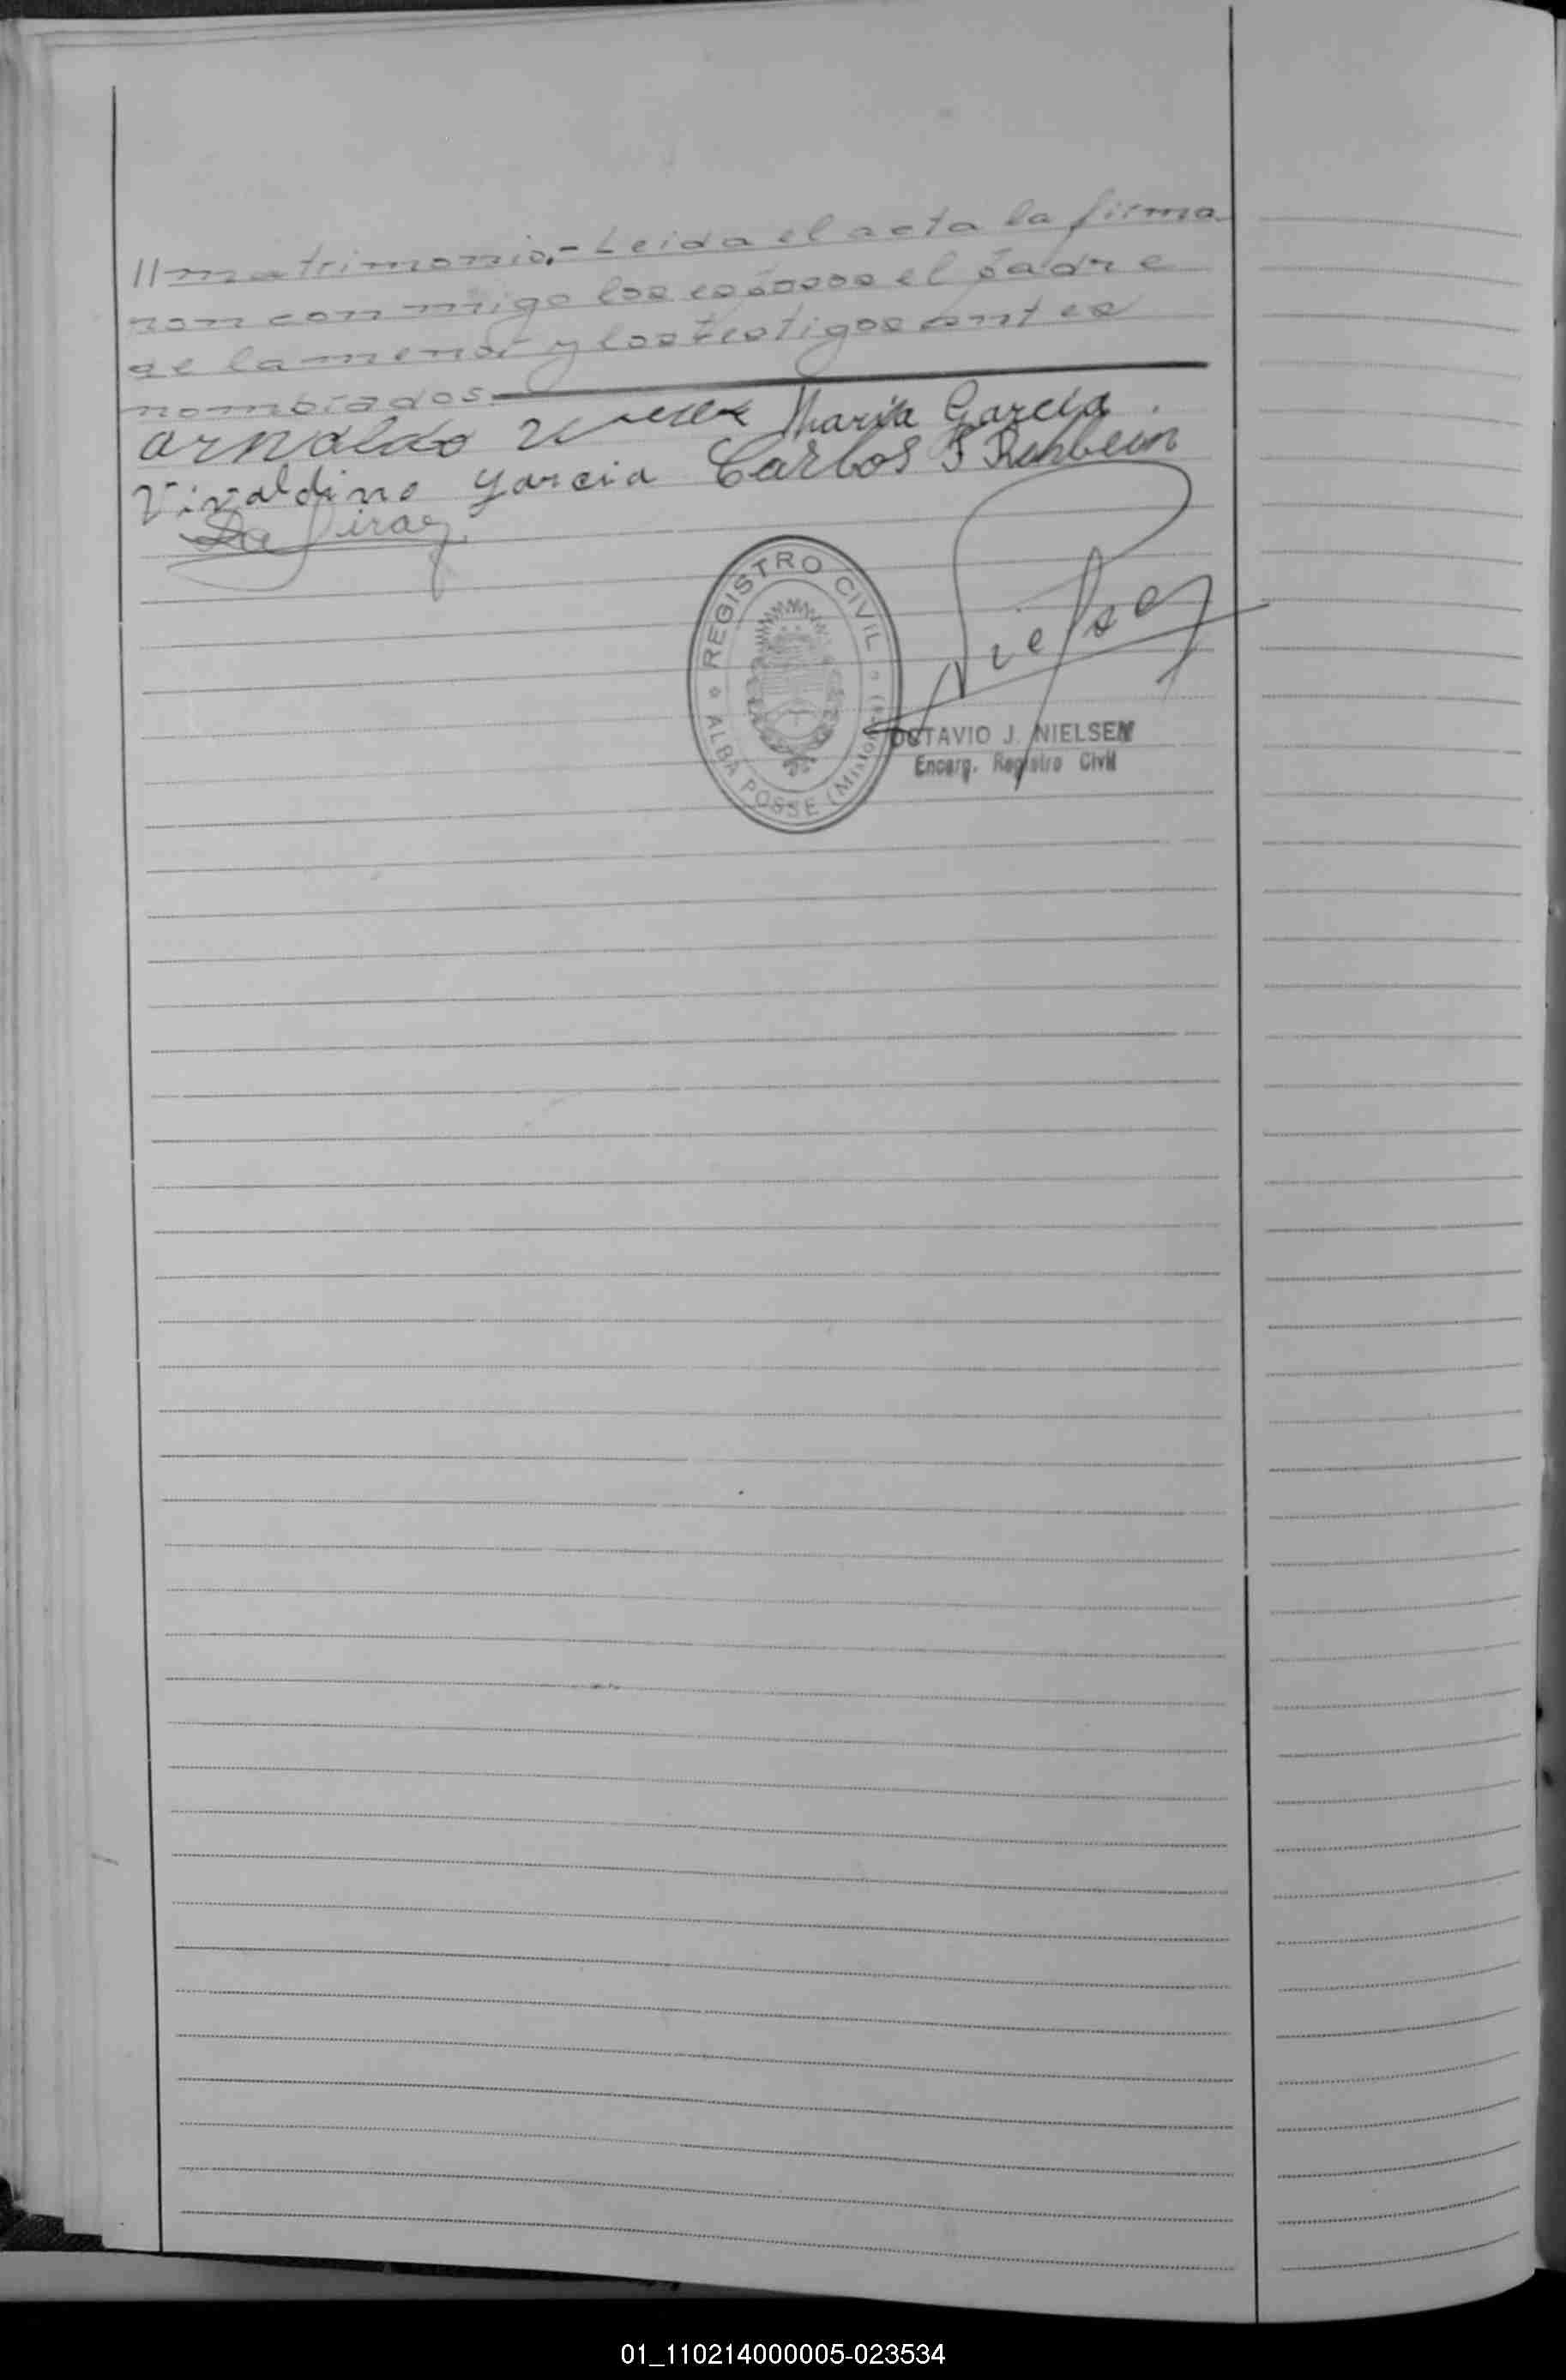 //matrimonio.- Leida el acta la firma
ron conmigo los esposos el padre
de la menor y los testigos antes
nombrados.
Arnaldo Maria Garcia.
Vivaldino Garcia Carlos F Rehbein
Nielsen
REGISTRO CIVIL
ALBA POSSE (Misiones)
OCTAVIO J. NIELSEN
Encarg. Registro Civil
01_110214000005-023534